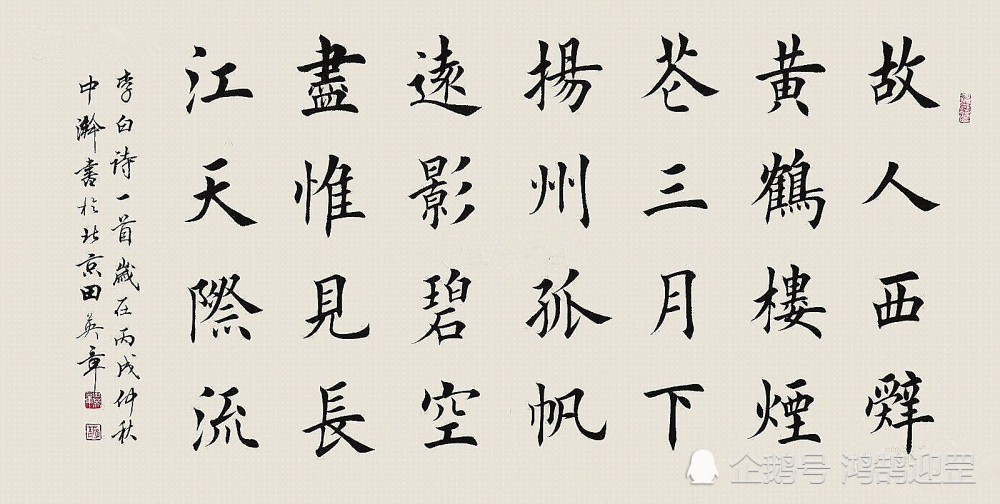 故人西辤
黄鶴樓煙
花三月下
揚州孤帆
遠影碧空
盡惟見長
江天際流
李白诗一首歲在丙戌仲秋
中澣書於北京田英章
企鹅号 鸿鹄迎罡